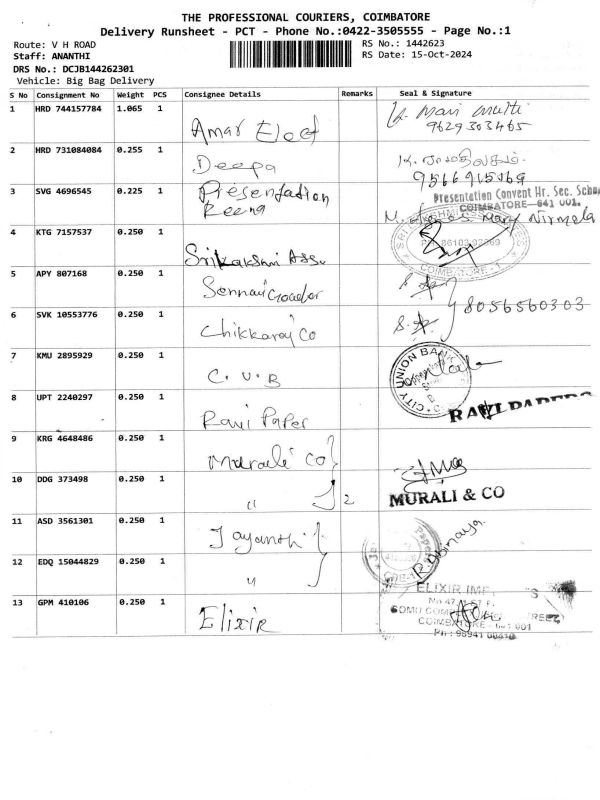 THE PROFESSIONAL COURIERS, COIMBATORE
Delivery Runsheet - PCT - Phone No.:0422-3505555 - Page No.:1
Route: V H ROAD
RS No.: 1442623
Staff: ANANTHI
RS Date: 15-Oct-2024
DRS No.: DCJB144262301
Vehicle: Big Bag Delivery
S No Consignment No Weight PCS Consignee Details Remarks Seal & Signature
1 HRD 744157784 1.065 1 Amar Elect
9629303465
2 HRD 731084084 0.255 1 Deepa
9566915169
3 SVG 4696545 0.225 1 Presentation
Reena
Presentation Convent Hr. Sec. School
COIMBATORE—641 001.
Mary Nirmala
4 KTG 7157537 0.250 1 Srilakshmi Assu
COIMBATORE - 1
5 APY 807168 0.250 1
8056560303
6 SVK 10553776 0.250 1 Chikkaraj Co
7 KMU 2895929 0.250 1 C. U. B
CITY UNION BANK
8 UPT 2240297 0.250 1 Ravi Paper
RAVI PAPERS
9 KRG 4648486 0.250 1 Murali Co
10 DDG 373498 0.250 1 " 2
MURALI & CO
11 ASD 3561301 0.250 1 Jayanthi
12 EDQ 15044829 0.250 1 "
13 GPM 410106 0.250 1 Elixir
ELIXIR
COIMBATORE - 641 001